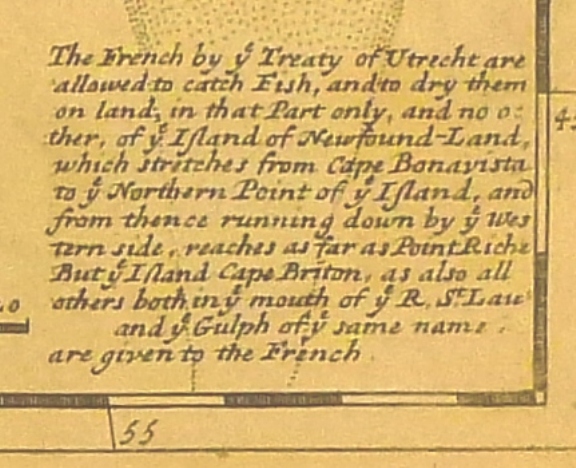 The French by yͤ Treaty of Utrecht are
allowed to catch Fish, and to dry them
on land, in that Part only, and no o:
ther, of yͤ Iſland of Newfound-Land,
which stretches from Cape Bonavista
to yͤ Northern Point of yͤ Iſland, and
from thence running down by yͤ Wes
tern side, reaches as far as Point Riche
But yͤ Iſland Cape Briton, as also all
others both in yͤ mouth of yͤ R. Sᵗ Lau
and yͤ Gulph of yͤ same name.
are given to the French
55